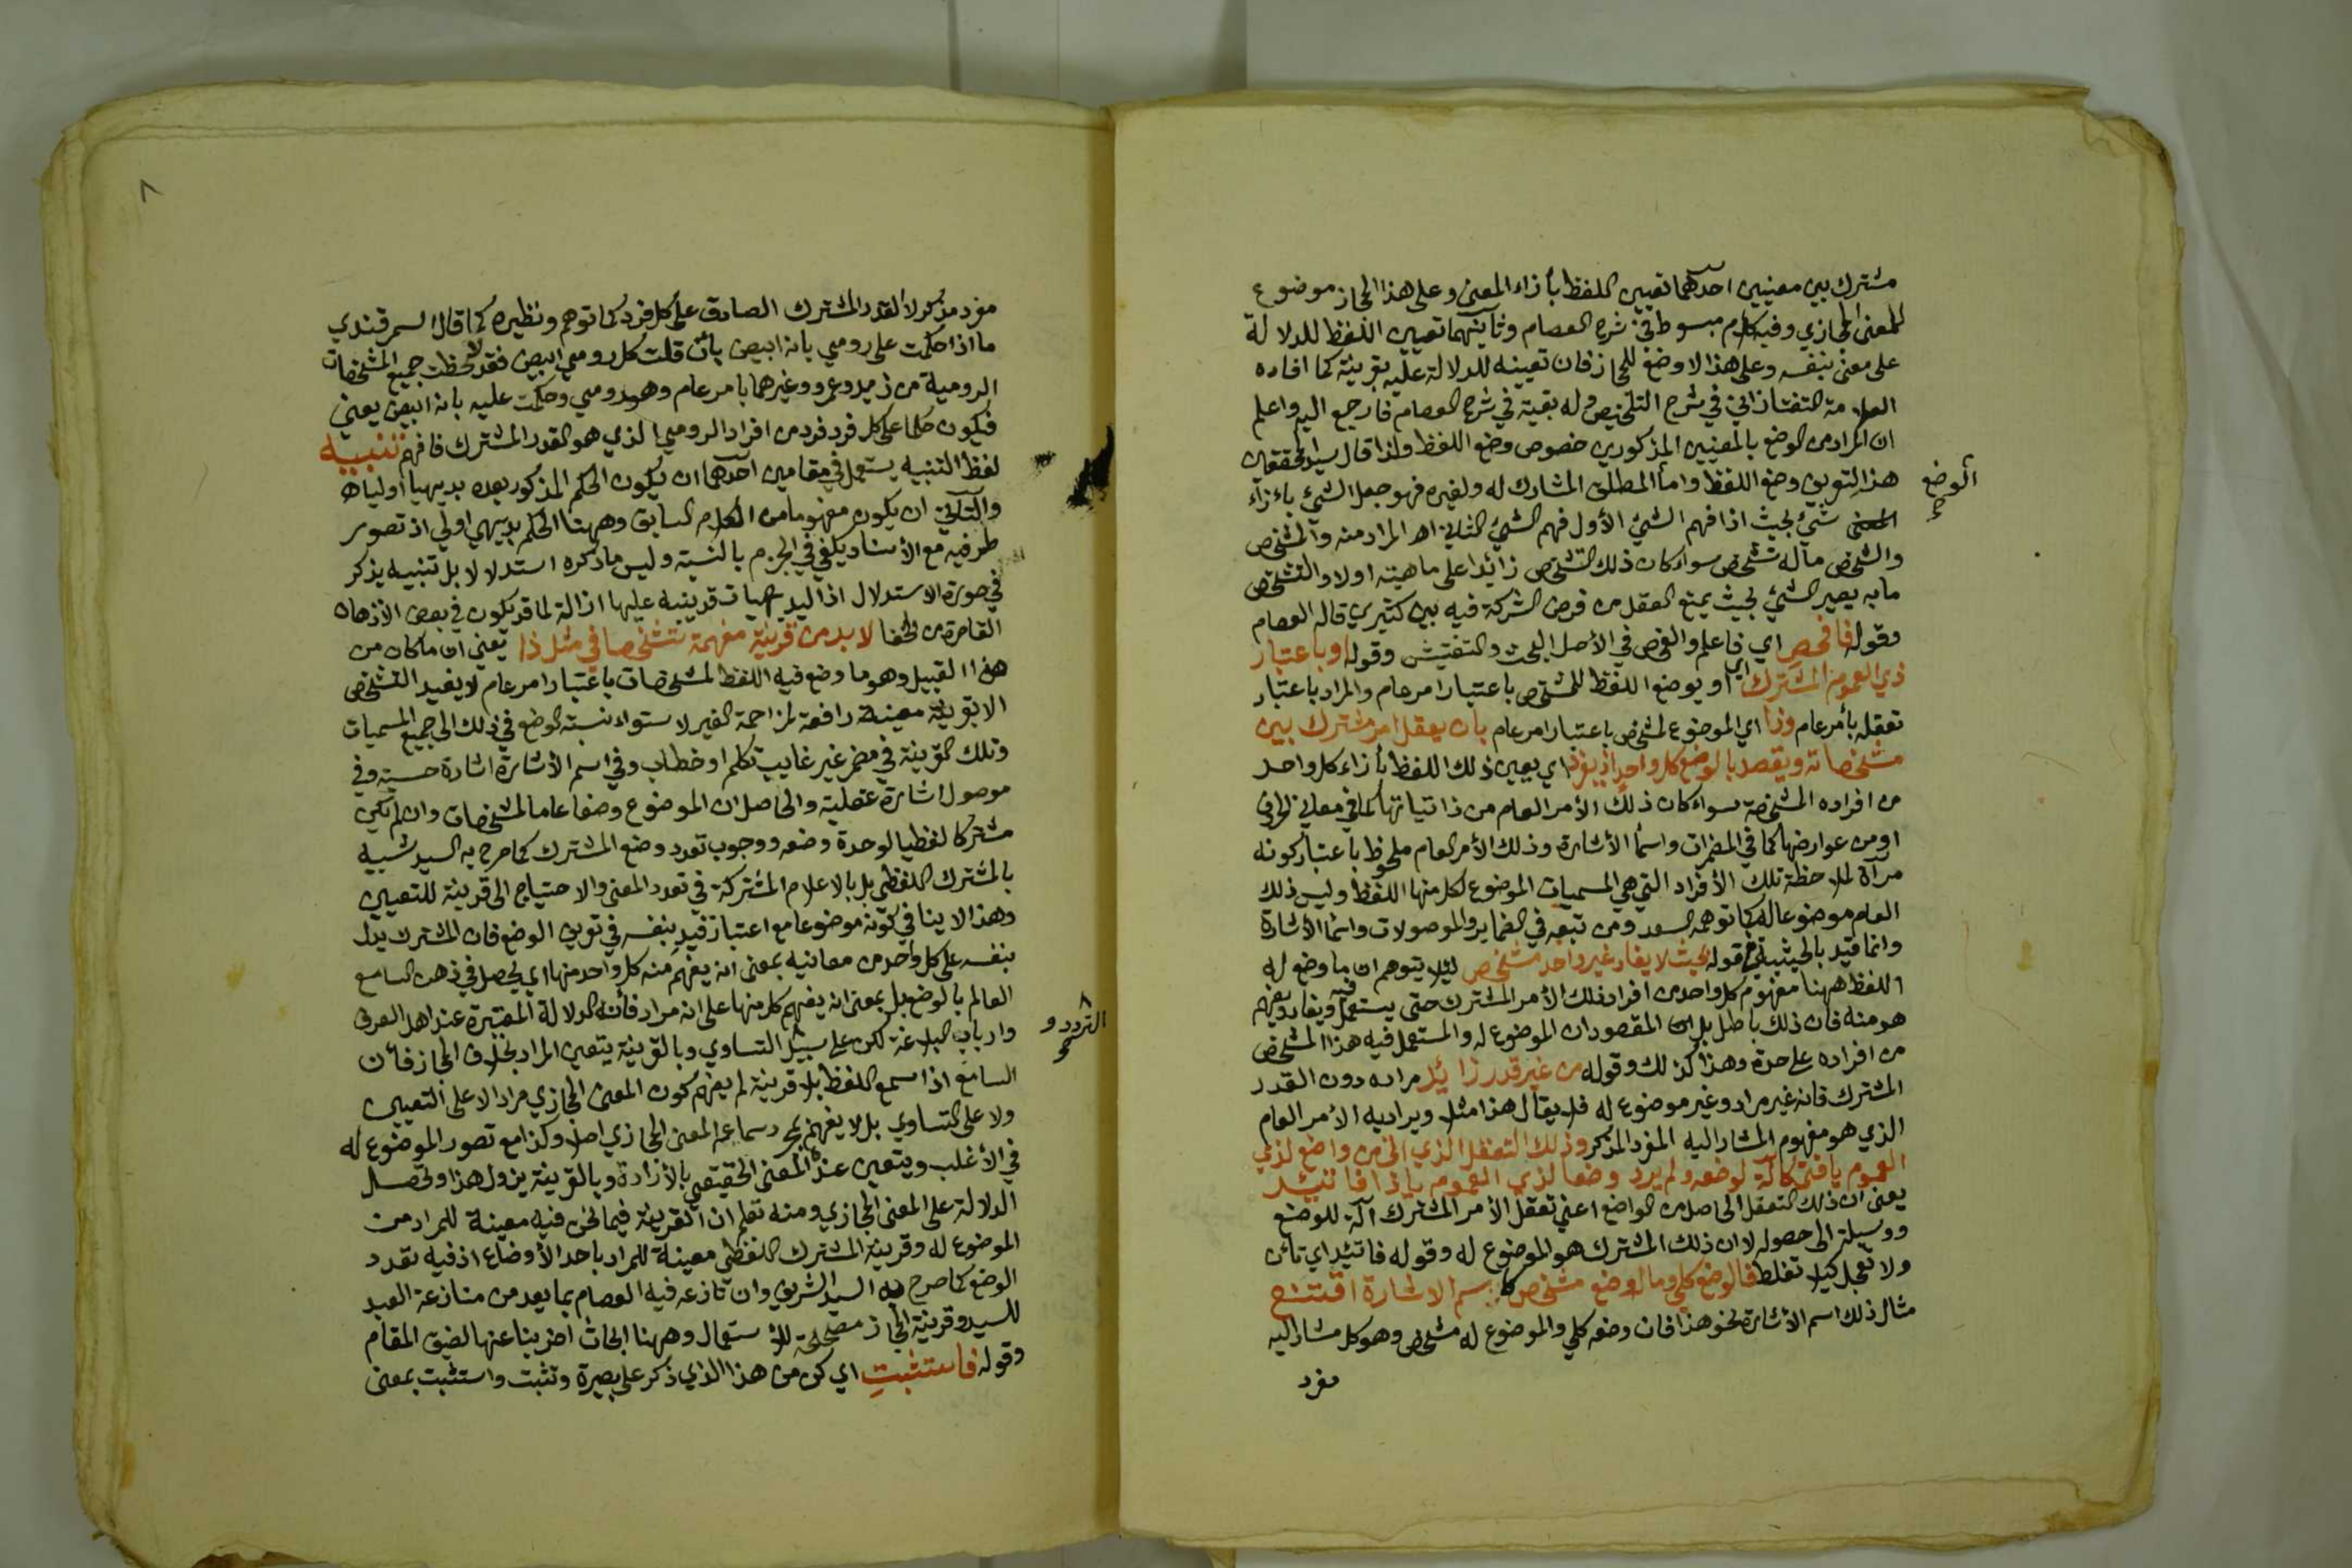 مشترك بين معنيين احدهما تعيين اللفظ بأزاء المعنى وعلى هذا المجاز موضوع
للمعنى المجازي وفيه كلام مبسوط في شرح العصام وثانيهما تعيين اللفظ للدلالة
على معنى بنفسه وعلى هذا لا وضع للمجاز فان تعيينه للدلالة عليه بقرينة كما افاده
العلامة التفتازاني في شرح التلخيص وله بقية في شرح العصام فارجع اليه واعلم
ان المراد من الوضع بالمعنيين المذكورين خصوص وضع اللفظ ولذا قال سيد المحققين
هذا التعريف وضع اللفظ واما المطلق المشارك له ولغيره فهو جعل الشيء بإزاء
الوضع
شيء بحيث اذا فهم الشيء الأول فهم الشيء الثاني اهـ المراد منه والمشخص
والشخص ماله تشخص سواء كان ذلك التشخص زائدا على ماهيته اولا والتشخص
ما به يصير الشيء بحيث يمنع العقل من فرض الشركة فيه بين كثيرين قاله العصام
وقوله فافحص اي فاعلم والفحص في الأصل البحث والتفتيش وقوله او باعتبار
ذي العموم المشترك اي او يوضع اللفظ للمشخص باعتبار امر عام والمراد باعتبار
تعقله بأمر عام وذا اي الموضوع لمشخص باعتبار امر عام بان يعقل امر مشترك بين
مشخصاته ويقصد بالوضع كل واحد اي يعين ذلك اللفظ بأزاء كل واحد
من افراده المشخصة سواء كان ذلك الأمر العام من ذاتياتها كما في معاني الحرف
او من عوارضها كما في المضمرات واسما الأشارة وذلك الأمر العام ملحوظ باعتبار كونه
مرآة لملاحظة تلك الأفراد التي هي المسميات الموضوع لكل منها اللفظ وليس ذلك
العام موضوعا له كما توهمه السعد ومن تبعه في الضماير والموصولات واسما الأشارة
وانما قيد بالحيثية في قوله بحيث لا يفاد غير واحد مشخص ليلا يتوهم ان ما وضع له
اللفظ ههنا مفهوم كل واحد من افراد ذلك الأمر المشترك حتى يستعمل فيه ويفاد ويفهم
هو منه فان ذلك باطل بل ان المقصود ان الموضوع له والمستعمل فيه هذا المشخص
من افراده على حدة وهذا كذلك وقوله من غير قدر زائد مراده دون القدر
المشترك فانه غير مراد وغير موضوع له فلا يقال هذا مثلا ويراد به الأمر العام
الذي هو مفهوم المشار اليه المفرد المذكر وذلك التعقل الذي الخ من واضع لذي
العموم يا فتى كآلة لوضعه ولم يرد وضعا لذي العموم يا ذا فاتئد
يعنى ان ذلك التعقل الحاصل من الواضع اعني تعقل الأمر المشترك آلة للوضع
ووسيلة الى حصوله لا ان ذلك المشترك هو الموضوع له وقوله فاتئد اي تأن
ولا تعجل كيلا تغلط فالوضع كلي وما الوضع مشخص كاسم الاشارة افتتح
مثال ذلك اسم الأشارة نحو هذا فان وضعه كلي والموضوع له مشخص وهو كل مشار اليه
مفرد
٨
مفرد مذكر لا القدر المشترك الصادق على كل فرد كما توهم ونظيره كما قال السمرقندي
ما اذا حكمت على رومي بانه ابيض بأن قلت كل رومي ابيض فقد لاحظت جميع المشخصات
الرومية من زيد وعمرو وغيرهما بامر عام وهو رومي وحكمت عليه بانه ابيض يعني
فيكون حكما على كل فرد فرد من افراد الرومي الذي هو القدر المشترك فافهم تنبيه
لفظ التنبيه يستعمل في مقامين احدهما ان يكون الحكم المذكور بعده بديهيا اوليا
والثاني ان يكون مفهوما من الكلام السابق وههنا الحكم بديهي اولي اذ تصور
طرفيه مع الأسناد يكفي في الجزم بالنسبة وليس ما ذكره استدلالا بل تنبيه يذكر
في صورة الاستدلال اذ البديهيات قد ينبه عليها ازالة لما قد يكون في بعض الاذهان
القاصرة من الخفا لا بد من قرينة مفهمة تشخصا في مثل ذا يعني ان ما كان من
هذا القبيل وهو ما وضع فيه اللفظ لمشخصات باعتبار امر عام لا يفيد التشخص
الا بقرينة معينة رافعة لمزاحمة الغير لاستواء نسبة الوضع في ذلك الى جميع المسميات
وتلك القرينة في مضمر غير غايب تكلم او خطاب وفي اسم الأشارة اشارة حسية وفي
موصول اشارة عقلية والحاصل ان الموضوع وضعا عاما لمشخصات وان لم يكن
مشتركا لفظيا لوحدة وضعه ووجوب تعدد وضع المشترك كما صرح به السيد شبيه
بالمشترك اللفظي بل بالاعلام المشتركة في تعدد المعنى والاحتياج الى قرينة للتعيين
وهذا لا ينافي كونه موضوعا مع اعتبار قيد بنفسه في تعريف الوضع فان المشترك يدل
بنفسه على كل واحد من معانيه بمعنى انه يفهم منه كل واحد منها اي يحصل في ذهن السامع
العالم بالوضع بل بمعنى انه يفهم كل منها على انه مراد فانه الدلالة المعتبرة عند اهل العرف
وارباب البلاغة لكن على سبيل التساوي وبالقرينة يتعين المراد بخلاف المجاز فأن
التردد و
السامع اذا سمع اللفظ بلا قرينة لم يفهم كون المعنى المجازي مرادا لا على التعيين
ولا على التساوي بل لا يفهم بمجرد سماعه المعنى المجازي اصلا وكذا مع تصور الموضوع له
في الأغلب ويتعين عنده المعنى الحقيقي بالأرادة وبالقرينة يزول هذا وتحصل
الدلالة على المعنى المجازي ومنه تعلم ان القرينة فيما نحن فيه معينة للمراد من
الموضوع له وقرينة المشترك اللفظي معينة للمراد باحد الأوضاع اذ فيه تعدد
الوضع كما صرح به السيد الشريف وان نازعه فيه العصام بما يعد من منازعة العبد
للسيد وقرينة المجاز مصححة للأستعمال وههنا ابحاث اضربنا عنها لضيق المقام
وقوله فاستثبت اي كن من هذا الذي ذكر على بصيرة وتثبت واستثبت بمعنى